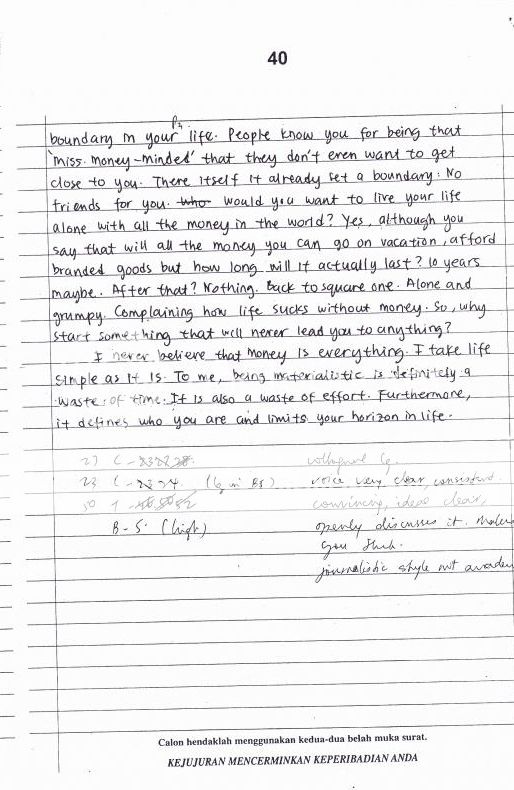 40
boundary in your life. People know you for being that
'miss. money-minded' that they don't even want to get
close to you. There itself it already set a boundary: No
friends for you. who would you want to live your life
alone with all the money in the world? Yes, although you
say that will all the money you can go on vacation, afford
branded goods but how long will it actually last? 10 years
maybe. After that? Nothing. Back to square one. Alone and
grumpy. Complaining how life sucks without money. So, why
start something that will never lead you to anything?
I never believe that money is everything. I take life
simple as it is. To me, being materialistic is definitely a
waste of time. It is also a waste of effort. Furthermore,
it defines who you are and limits your horizon in life.
voice very clear, consistent.
convincing, ideas clear,
B-5. (high)
openly discusses it. makes
you think.
journalistic style not
Calon hendaklah menggunakan kedua-dua belah muka surat.
KEJUJURAN MENCERMINKAN KEPERIBADIAN ANDA